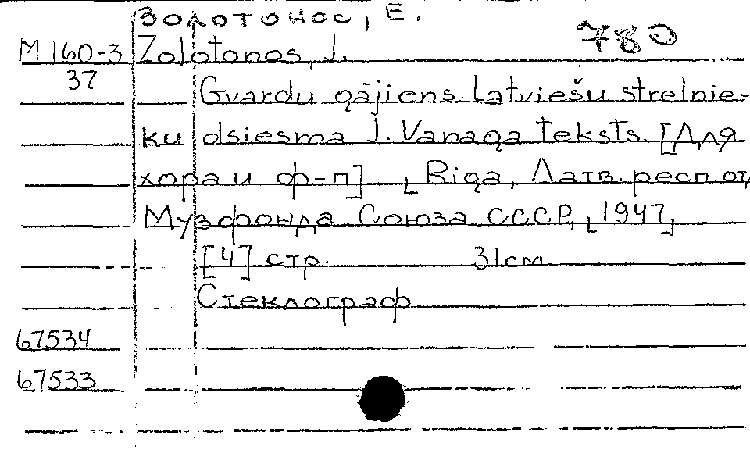 Золотонос, Е.
780
М 160-3 Zolotonos, J.
37
Gvardu gājiens Latviešu strēlnie-
ku dsiesma J. Vanaga teksts. [Для
хора и ф-п] [Riga, Латв. респ от,
Музфонда Союза СССР, [1947]
[4] стр. 31 см
Стеклограф
67534
67533